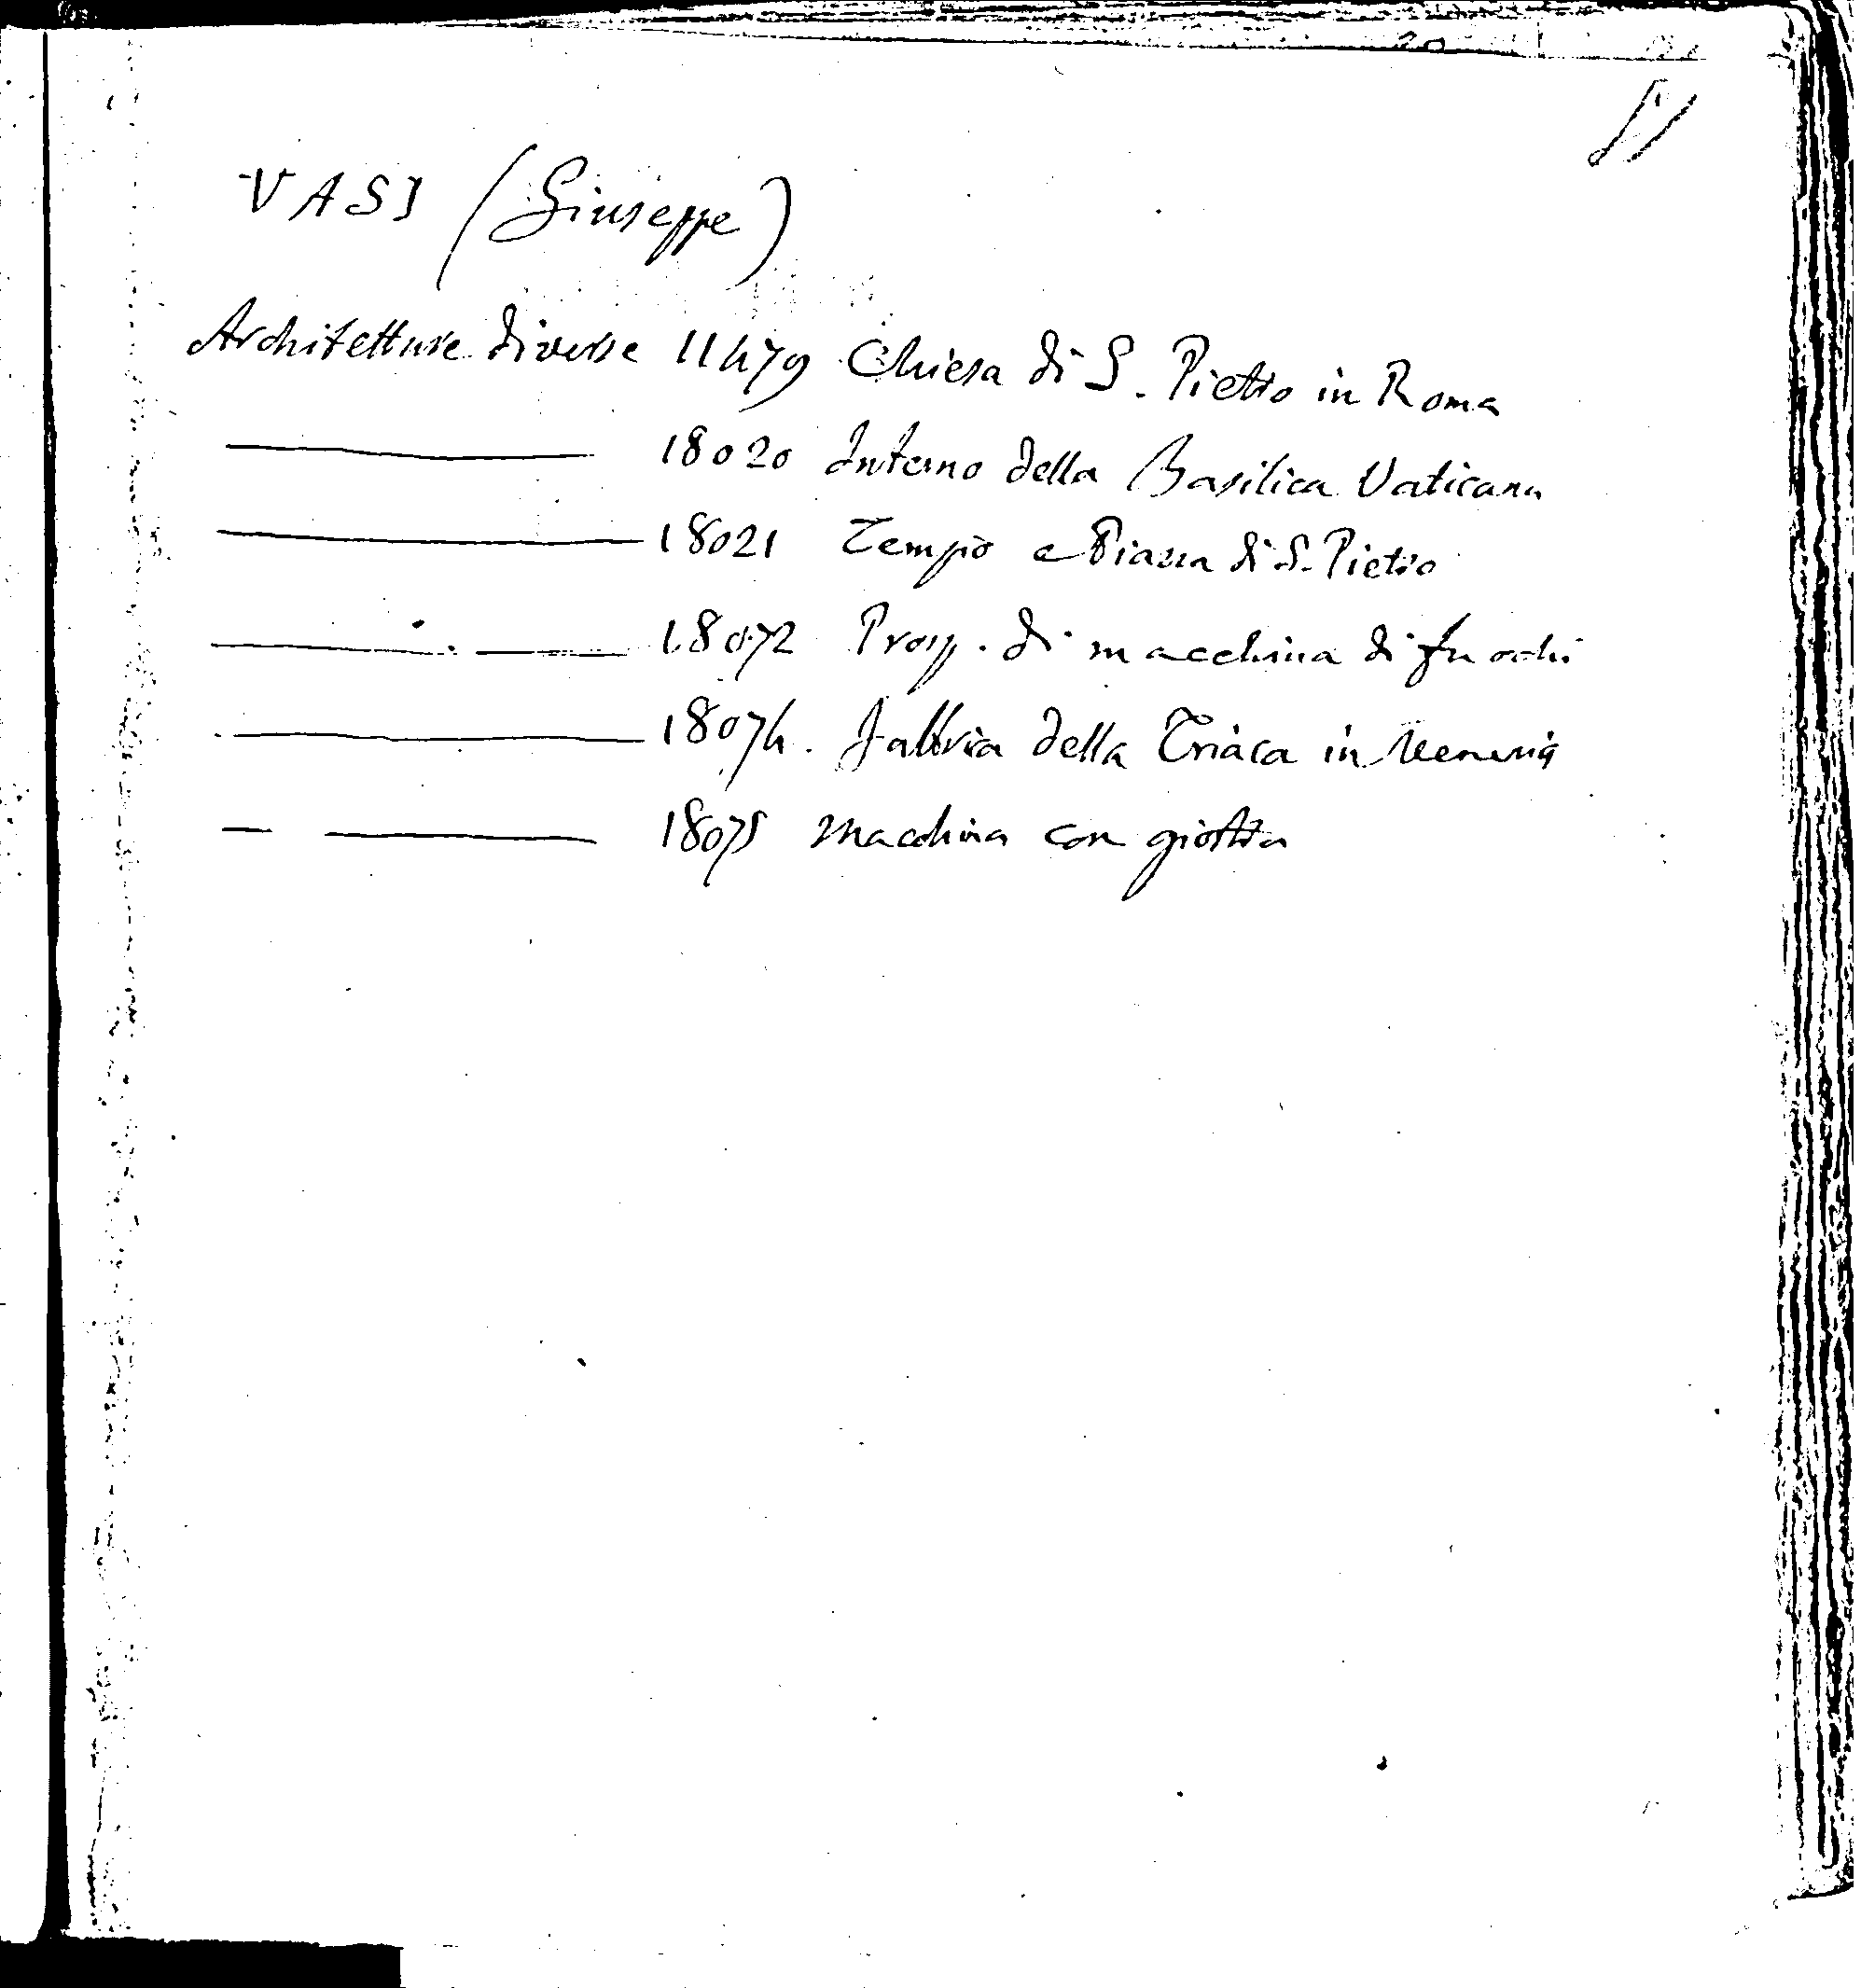 51
VASI (Giuseppe)
Architetture diverse 11479 Chiesa di S. Pietro in Roma
18020 Interno della Basilica Vaticana
18021 Tempio e Piazza di S. Pietro
18072 Prosp. di macchina di fuochi
18074. Fabbrica della Triaca in Venezia
18075 Macchina con giostra